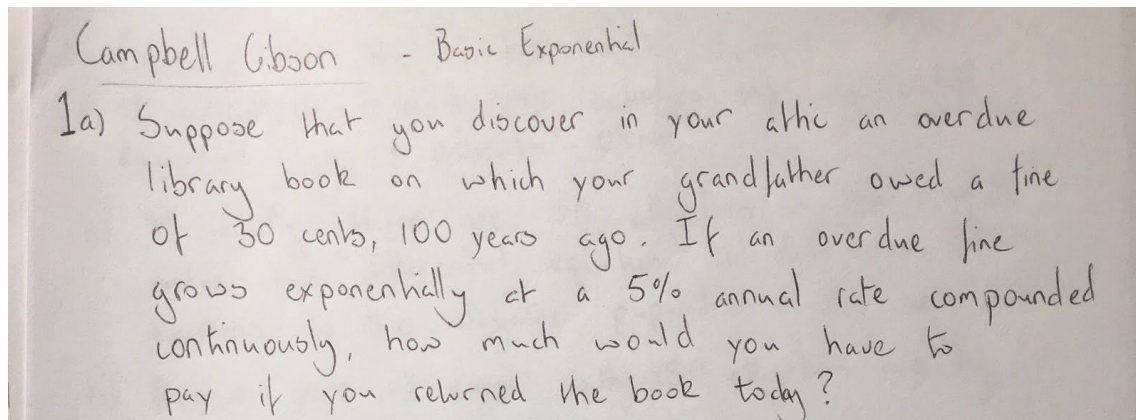 Campbell Gibson - Basic Exponential
1a) Suppose that you discover in your attic an overdue
library book on which your grandfather owed a fine
of 30 cents, 100 years ago. If an overdue fine
grows exponentially at a 5% annual rate compounded
continuously, how much would you have to
pay if you returned the book today?